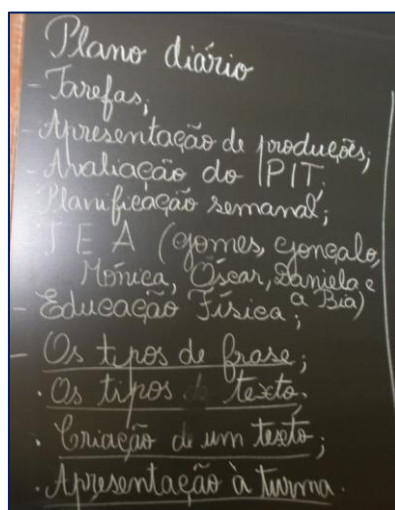 Plano diário
- Tarefas;
- Apresentação de produções;
- Avaliação do PIT;
Planificação semanal;
T E A (Gomes, Gonçalo,
Mónica, Óscar, Daniela e
a Bia)
- Educação Física;
- Os tipos de frase;
. Os tipos de texto;
. Criação de um texto;
. Apresentação à turma.